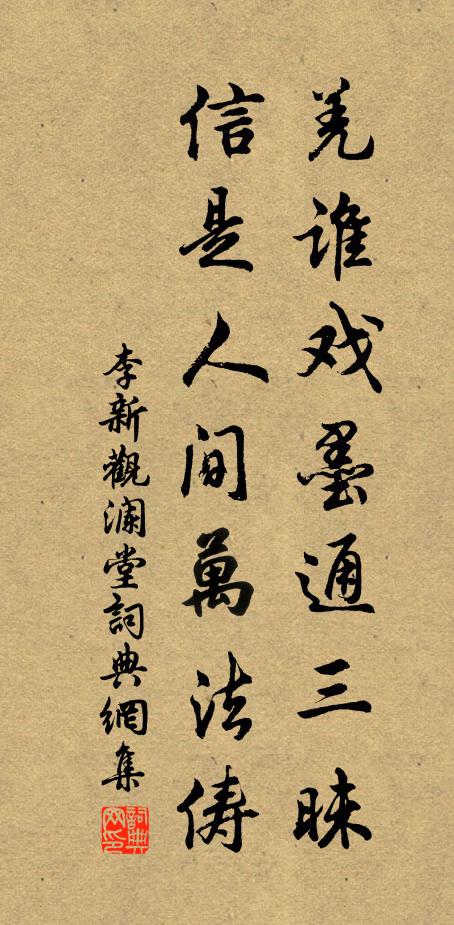 羌谁戏墨通三昧
信是人间萬法俦
李新觀澜堂詞典網集
詞典網印